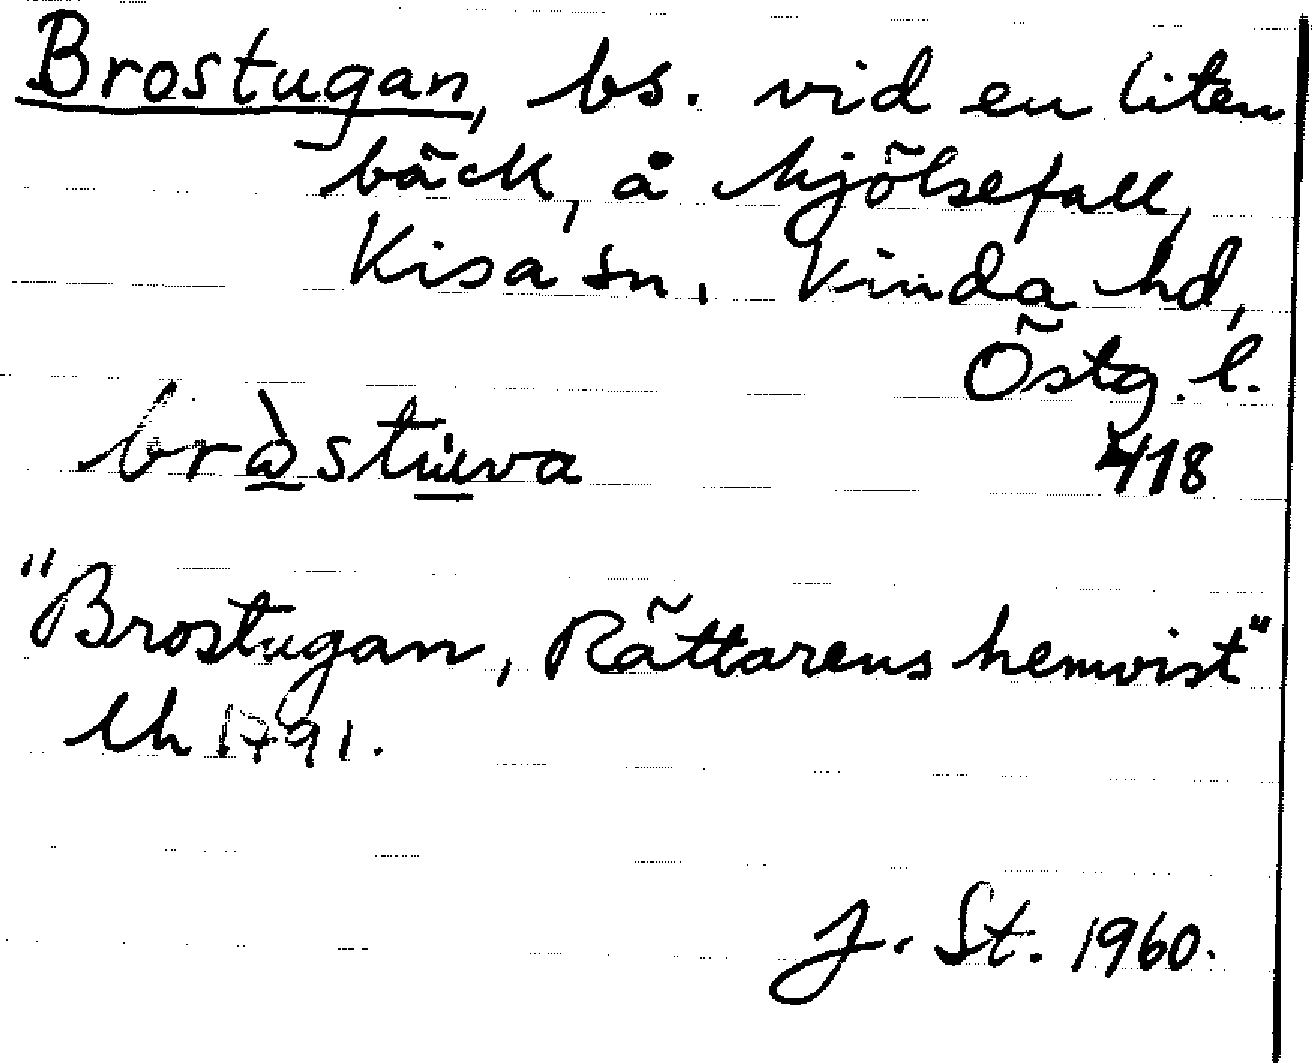 Brostugan, bs. vid en liten
bäck, å Mjölsefall,
Kisa sn, Kinda hd,
Östg. l.
418
"Brostugan, Rättarens hemvist"
Lh 1791.
J. St. 1960.